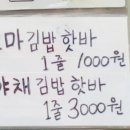 꼬마김밥 핫바
1줄 1000원
야채김밥 핫바
1줄 3000원